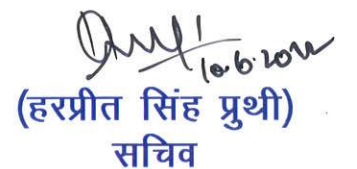 10.6.2022
(हरप्रीत सिंह प्रुथी)
सचिव